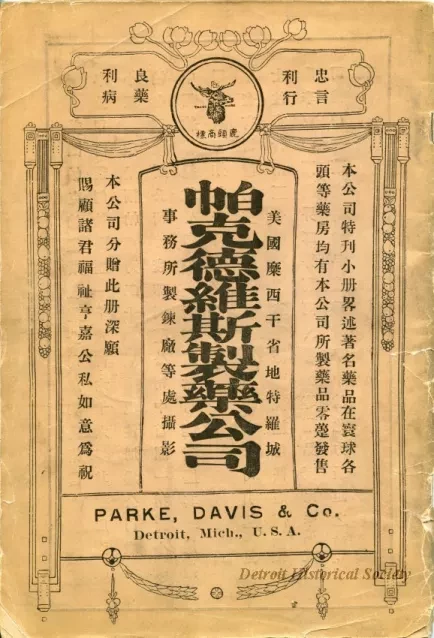 忠言
利行
良藥
利病
鹿頭商標
本公司特刊小册畧述著名藥品在寰球各
頭等藥房均有本公司所製藥品零躉發售
美國麋西干省地特羅城
帕克德維斯製藥公司
事務所製鍊廠等處攝影
本公司分贈此册深願
賜顧諸君福祉亨嘉公私如意爲祝
PARKE, DAVIS & Co.
Detroit, Mich., U. S. A.
Detroit Historical Society